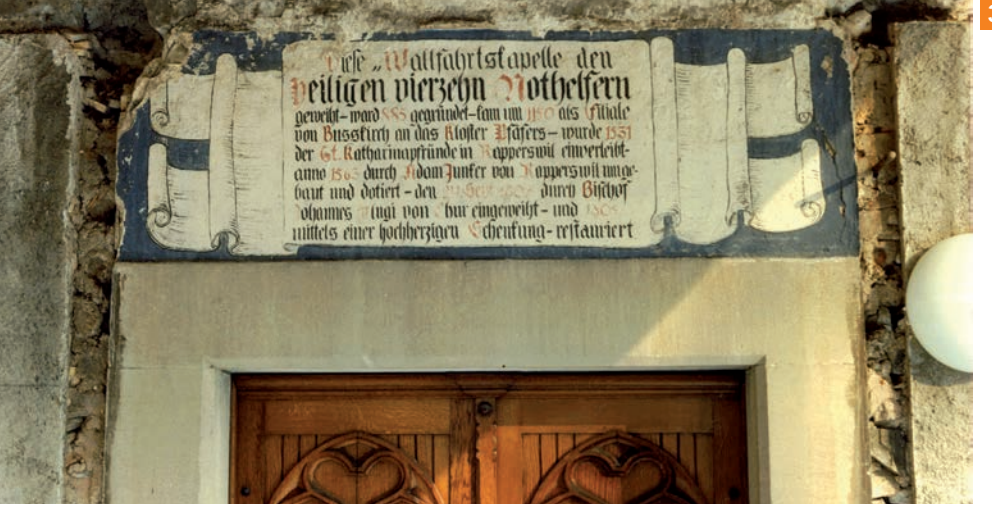 Diese „Wallfahrtskapelle den
Heiligen vierzehn Nothelfern
geweiht – ward 885 gegründet – kam um 1150 als Filiale
von Busskirch an das Kloster Pfäfers – wurde
der St. Katharinapfründe in Rapperswil einverleibt –
anno 1563 durch Adam Junker von Rapperswil umge-
baut und dotiert – den Sept. durch Bischof
Johannes Flugi von Chur eingeweiht – und
mittels einer hochherzigen Schenkung – restauriert
3